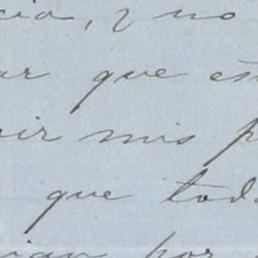 cia, y no
ar que es
ir mis p
que tod
ian por